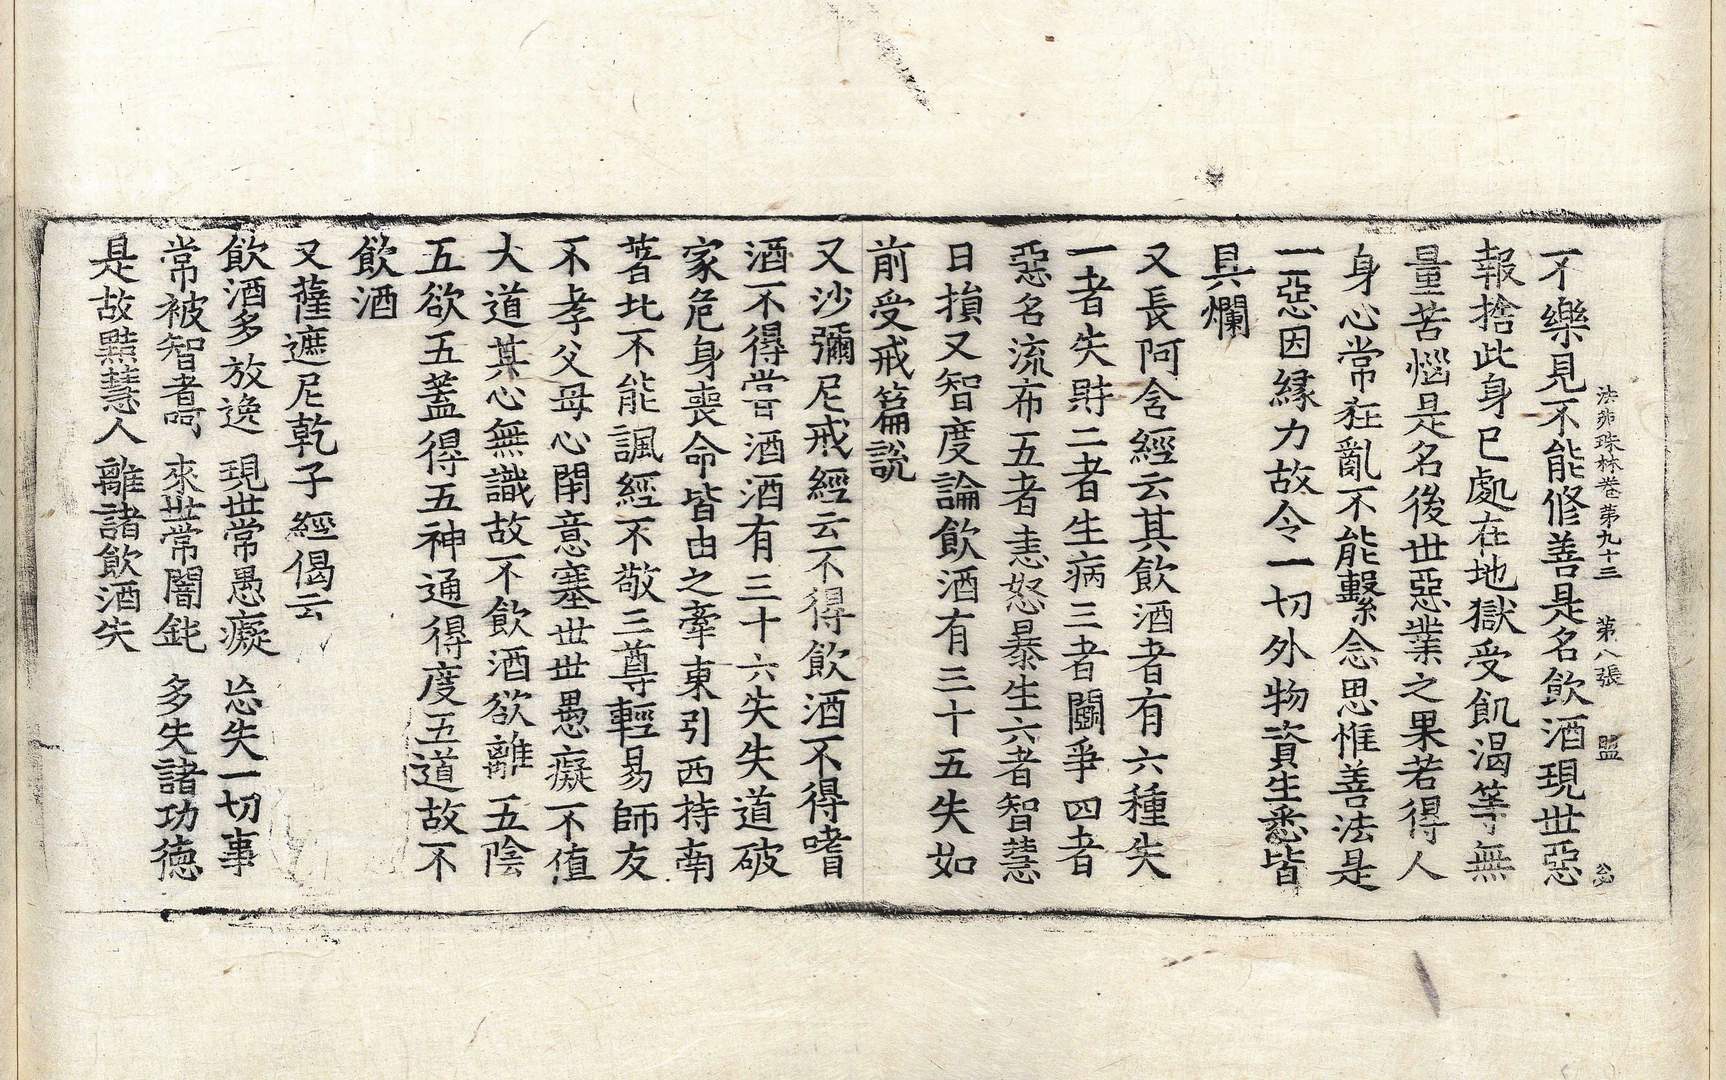 法苑珠林卷第九十三　第八張　盟
不樂見不能修善是名飲酒現世惡
報捨此身已處在地獄受飢渴等無
量苦惱是名後世惡業之果若得人
身心常狂亂不能繫念思惟善法是
一惡因緣力故令一切外物資生悉皆
具爛
又長阿含經云其飲酒者有六種失
一者失財二者生病三者鬪爭四者
惡名流布五者恚怒暴生六者智慧
日損又智度論飲酒有三十五失如
前受戒篇說
又沙彌尼戒經云不得飲酒不得嗜
酒不得嘗酒酒有三十六失失道破
家危身喪命皆由之牽東引西持南
著北不能諷經不敬三尊輕易師友
不孝父母心閉意塞世世愚癡不值
大道其心無識故不飲酒欲離五陰
五欲五蓋得五神通得度五道故不
飲酒
又薩遮尼乾子經偈云
飲酒多放逸　現世常愚癡　忘失一切事
常被智者呵　來世常闇鈍　多失諸功德
是故黠慧人　離諸飲酒失